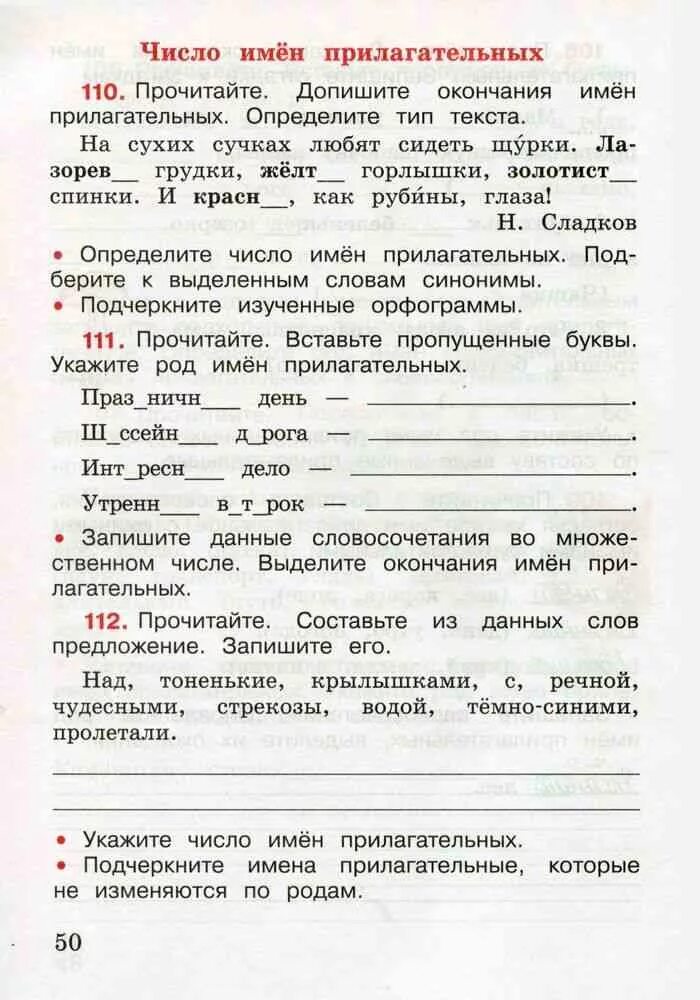 Число имён прилагательных
110. Прочитайте. Допишите окончания имён
прилагательных. Определите тип текста.
На сухих сучках любят сидеть щу́рки. Ла-
зорев__ грудки, жёлт__ горлышки, золотист__
спинки. И красн__, как руби́ны, глаза!
Н. Сладков
• Определите число имён прилагательных. Под-
берите к выделенным словам синонимы.
• Подчеркните изученные орфограммы.
111. Прочитайте. Вставьте пропущенные буквы.
Укажите род имён прилагательных.
Праз_ничн___ день — ____________________.
Ш_ссейн___ д_рога — ____________________.
Инт_ресн___ дело — ____________________.
Утренн___ в_т_рок — ____________________.
• Запишите данные словосочетания во множе-
ственном числе. Выделите окончания имён при-
лагательных.
112. Прочитайте. Составьте из данных слов
предложение. Запишите его.
Над, тоненькие, крылышками, с, речной,
чудесными, стрекозы, водой, тёмно-синими,
пролетали.
• Укажите число имён прилагательных.
• Подчеркните имена прилагательные, которые
не изменяются по родам.
50